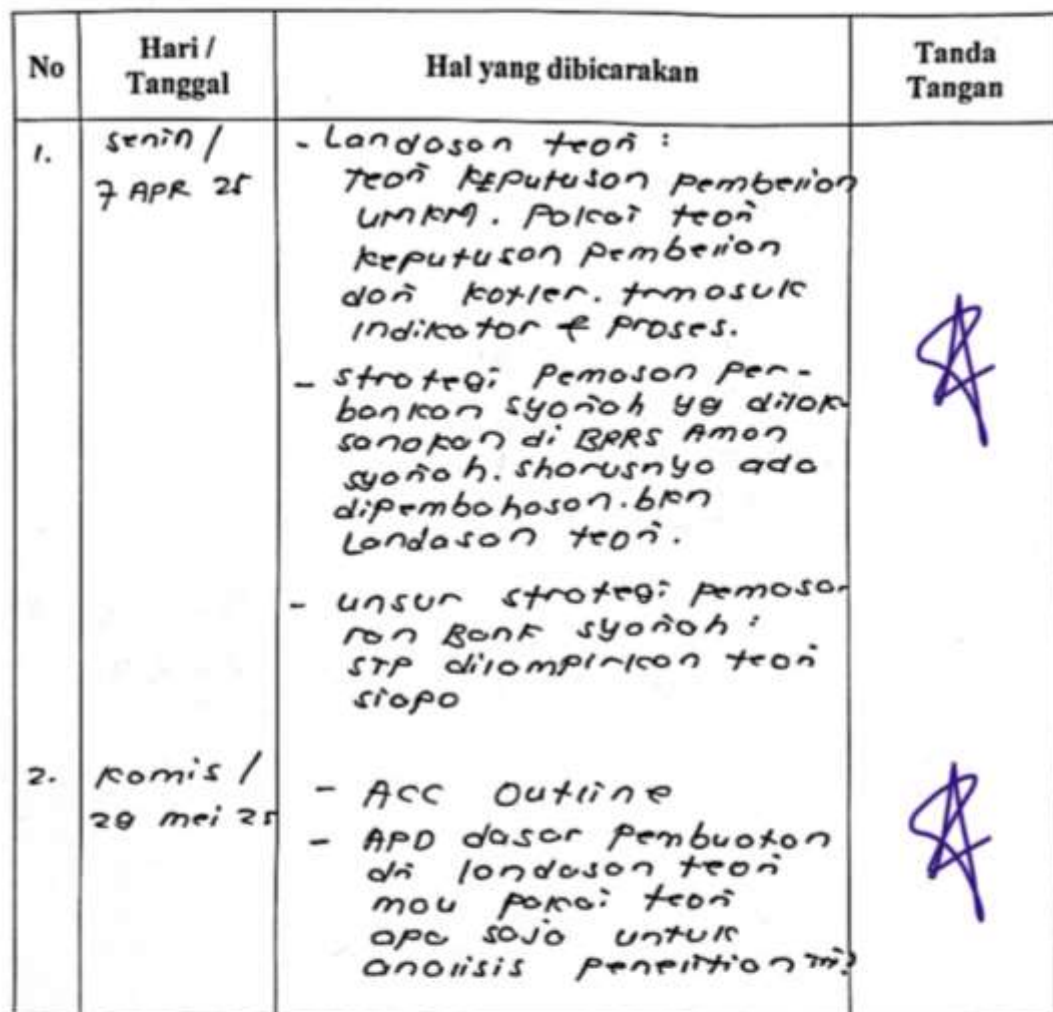 No
Hari /
Tanggal
Hal yang dibicarakan
Tanda
Tangan
1.
Senin /
7 APR 25
- Landasan teori :
Teori Keputusan Pembelian
UMKM. Pakai teori
Keputusan Pembelian
dari Kotler. trmasuk
Indikator & Proses.
- Strategi Pemasan Per-
bankan syariah yg dilak
sanakan di BPRS Aman
syariah. sharusnya ada
dipembahasan. bkn
Landasan teori.
- unsur strategi pemasa-
ran Bank syariah :
STP dilampirkan teori
siapa
2.
Kamis /
mei 25
- ACC Outline
- APD dasar Pembuatan
dri landasan teori
mau pakai teori
apa saja untuk
analisis penelitian ini?